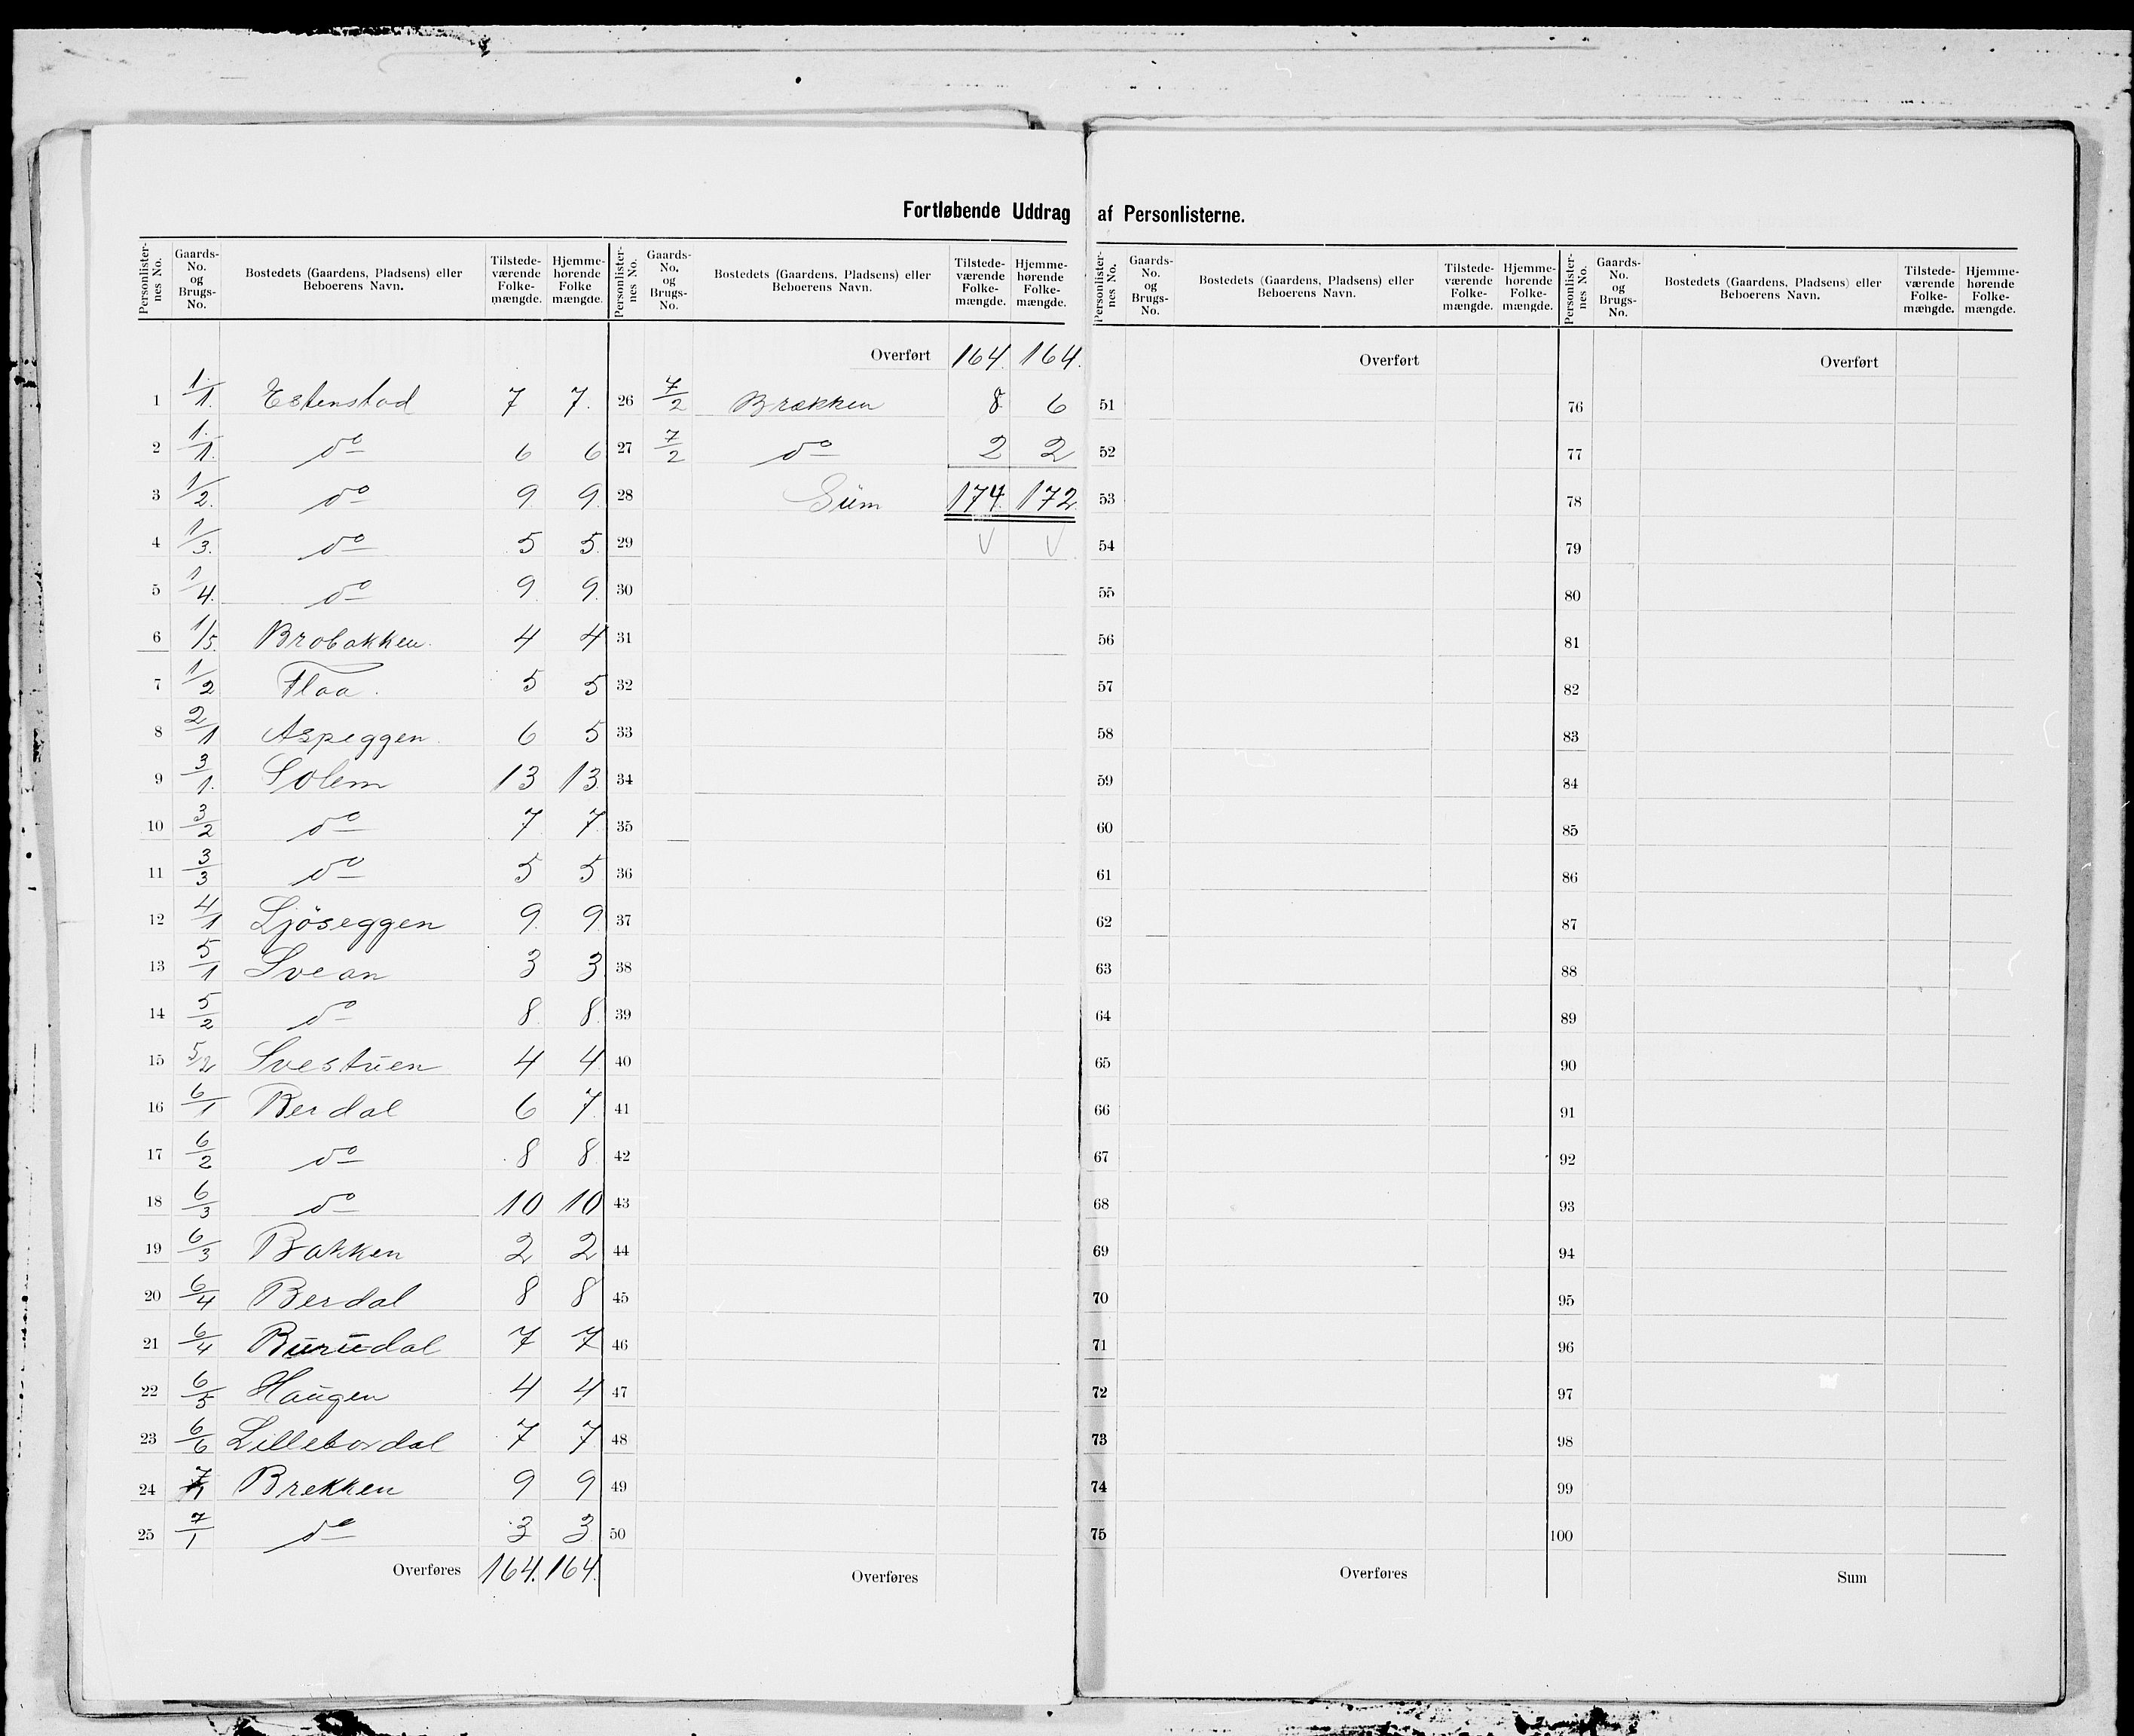 Fortløbende Uddrag af Personlisterne.
Personlister-nes No. | Gaards-No. og Brugs-No. | Bostedets (Gaardens, Pladsens) eller Beboerens Navn. | Tilstede-værende Folke-mængde. | Hjemme-hørende Folke mængde.
1 1/1. Estenstad 7 7.
2 1/1. do 6 6
3 1/2. do 9 9.
4 1/3. do 5 5.
5 1/4. do 9 9.
6 1/5. Brobakken. 4 4
7 1/2 Flaa. 5 5
8 2/1 Aspeggen. 6 5
9 3/1. Solem 13 13.
10 3/2 do 7 7
11 3/3 do 5 5
12 4/1 Ljöseggen 9 9
13 5/1 Svean 3 3
14 5/2 do 8 8
15 5/2 Svestuen 4 4
16 6/1 Berdal 6 7
17 6/2 do 8 8
18 6/3 do 10 10
19 6/3 Bakken 2 2
20 6/4 Berdal 8 8
21 6/4 Burudal 7 7
22 6/5 Haugen 4 4
23 6/6 Lilleberdal 7 7
24 7/1 Brekken 9 9
25 7/1 do 3 3
Overføres 164. 164.
Personlister-nes No. | Gaards-No. og Brugs-No. | Bostedets (Gaardens, Pladsens) eller Beboerens Navn. | Tilstede-værende Folke-mængde. | Hjemme-hørende Folke-mængde.
Overført 164. 164.
26 7/2 Brækken 8 6
27 7/2 do 2 2
28 Sum 174. 172.
29 V V
30
31
32
33
34
35
36
37
38
39
40
41
42
43
44
45
46
47
48
49
50
Overføres
Personlister-nes No. | Gaards-No. og Brugs-No. | Bostedets (Gaardens, Pladsens) eller Beboerens Navn. | Tilstede-værende Folke-mængde. | Hjemme-hørende Folke-mængde.
Overført
51
52
53
54
55
56
57
58
59
60
61
62
63
64
65
66
67
68
69
70
71
72
73
74
75
Overføres
Personlister-nes No. | Gaards-No. og Brugs-No. | Bostedets (Gaardens, Pladsens) eller Beboerens Navn. | Tilstede-værende Folke-mængde. | Hjemme-hørende Folke-mængde.
Overført
76
77
78
79
80
81
82
83
84
85
86
87
88
89
90
91
92
93
94
95
96
97
98
99
100
Sum